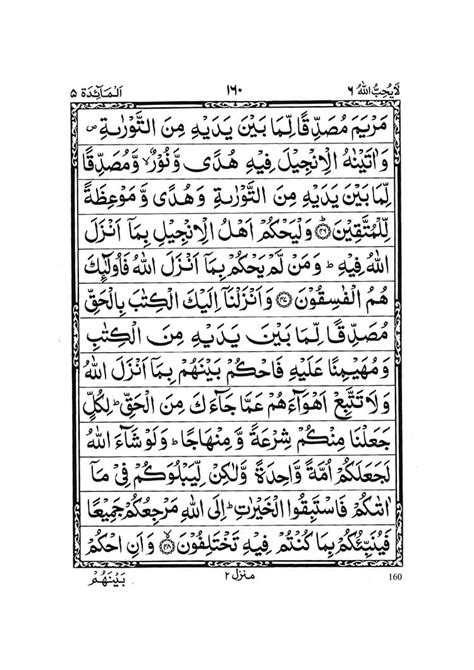 لَا يُحِبُّ اللهُ ٦ ١٦٠ اَلْمَآئِدَة ٥
مَرْيَمَ مُصَدِّقًا لِّمَا بَيْنَ يَدَيْهِ مِنَ التَّوْرٰىةِ ۪
وَاٰتَيْنٰهُ الْاِنْجِيْلَ فِيْهِ هُدًى وَّنُوْرٌ ۙ وَّمُصَدِّقًا
لِّمَا بَيْنَ يَدَيْهِ مِنَ التَّوْرٰىةِ وَهُدًى وَّمَوْعِظَةً
لِّلْمُتَّقِيْنَ ﴿٤٦﴾ وَلْيَحْكُمْ اَهْلُ الْاِنْجِيْلِ بِمَاۤ اَنْزَلَ
اللهُ فِيْهِ ؕ وَمَنْ لَّمْ يَحْكُمْ بِمَاۤ اَنْزَلَ اللهُ فَاُولٰٓئِكَ
هُمُ الْفٰسِقُوْنَ ﴿٤٧﴾ وَاَنْزَلْنَاۤ اِلَيْكَ الْكِتٰبَ بِالْحَقِّ
مُصَدِّقًا لِّمَا بَيْنَ يَدَيْهِ مِنَ الْكِتٰبِ
وَمُهَيْمِنًا عَلَيْهِ فَاحْكُمْ بَيْنَهُمْ بِمَاۤ اَنْزَلَ اللهُ
وَلَا تَتَّبِعْ اَهْوَآءَهُمْ عَمَّا جَآءَكَ مِنَ الْحَقِّ ؕ لِكُلٍّ
جَعَلْنَا مِنْكُمْ شِرْعَةً وَّمِنْهَاجًا ؕ وَلَوْ شَآءَ اللهُ
لَجَعَلَكُمْ اُمَّةً وَّاحِدَةً وَّلٰكِنْ لِّيَبْلُوَكُمْ فِيْ مَاۤ
اٰتٰىكُمْ فَاسْتَبِقُوا الْخَيْرٰتِ ؕ اِلَى اللهِ مَرْجِعُكُمْ جَمِيْعًا
فَيُنَبِّئُكُمْ بِمَا كُنْتُمْ فِيْهِ تَخْتَلِفُوْنَ ﴿٤٨﴾ وَاَنِ احْكُمْ
بَيْنَهُمْ منزل ٢ 160